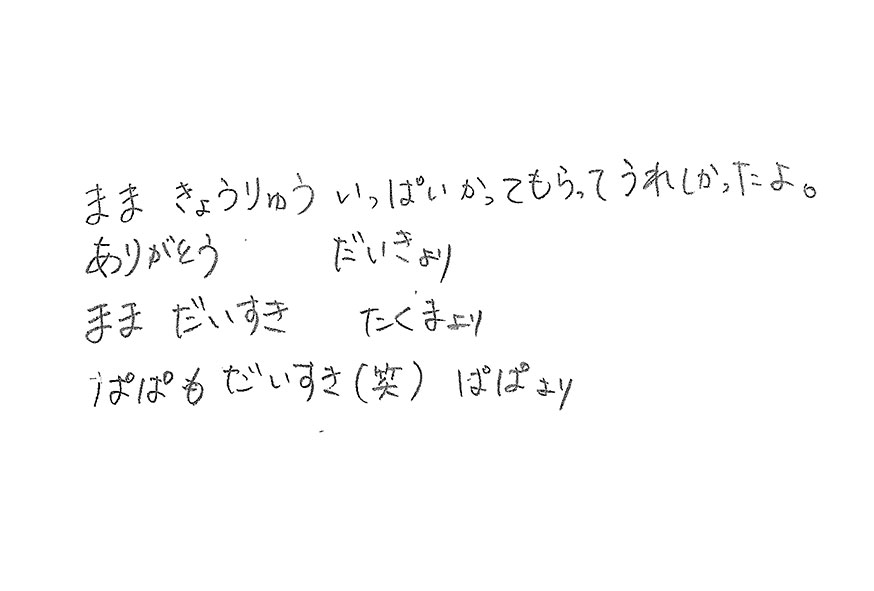 まま きょうりゅう いっぱい かってもらって うれしかったよ。
ありがとう だいきより
まま だいすき たくまより
ぱぱも だいすき(笑) ぱぱより